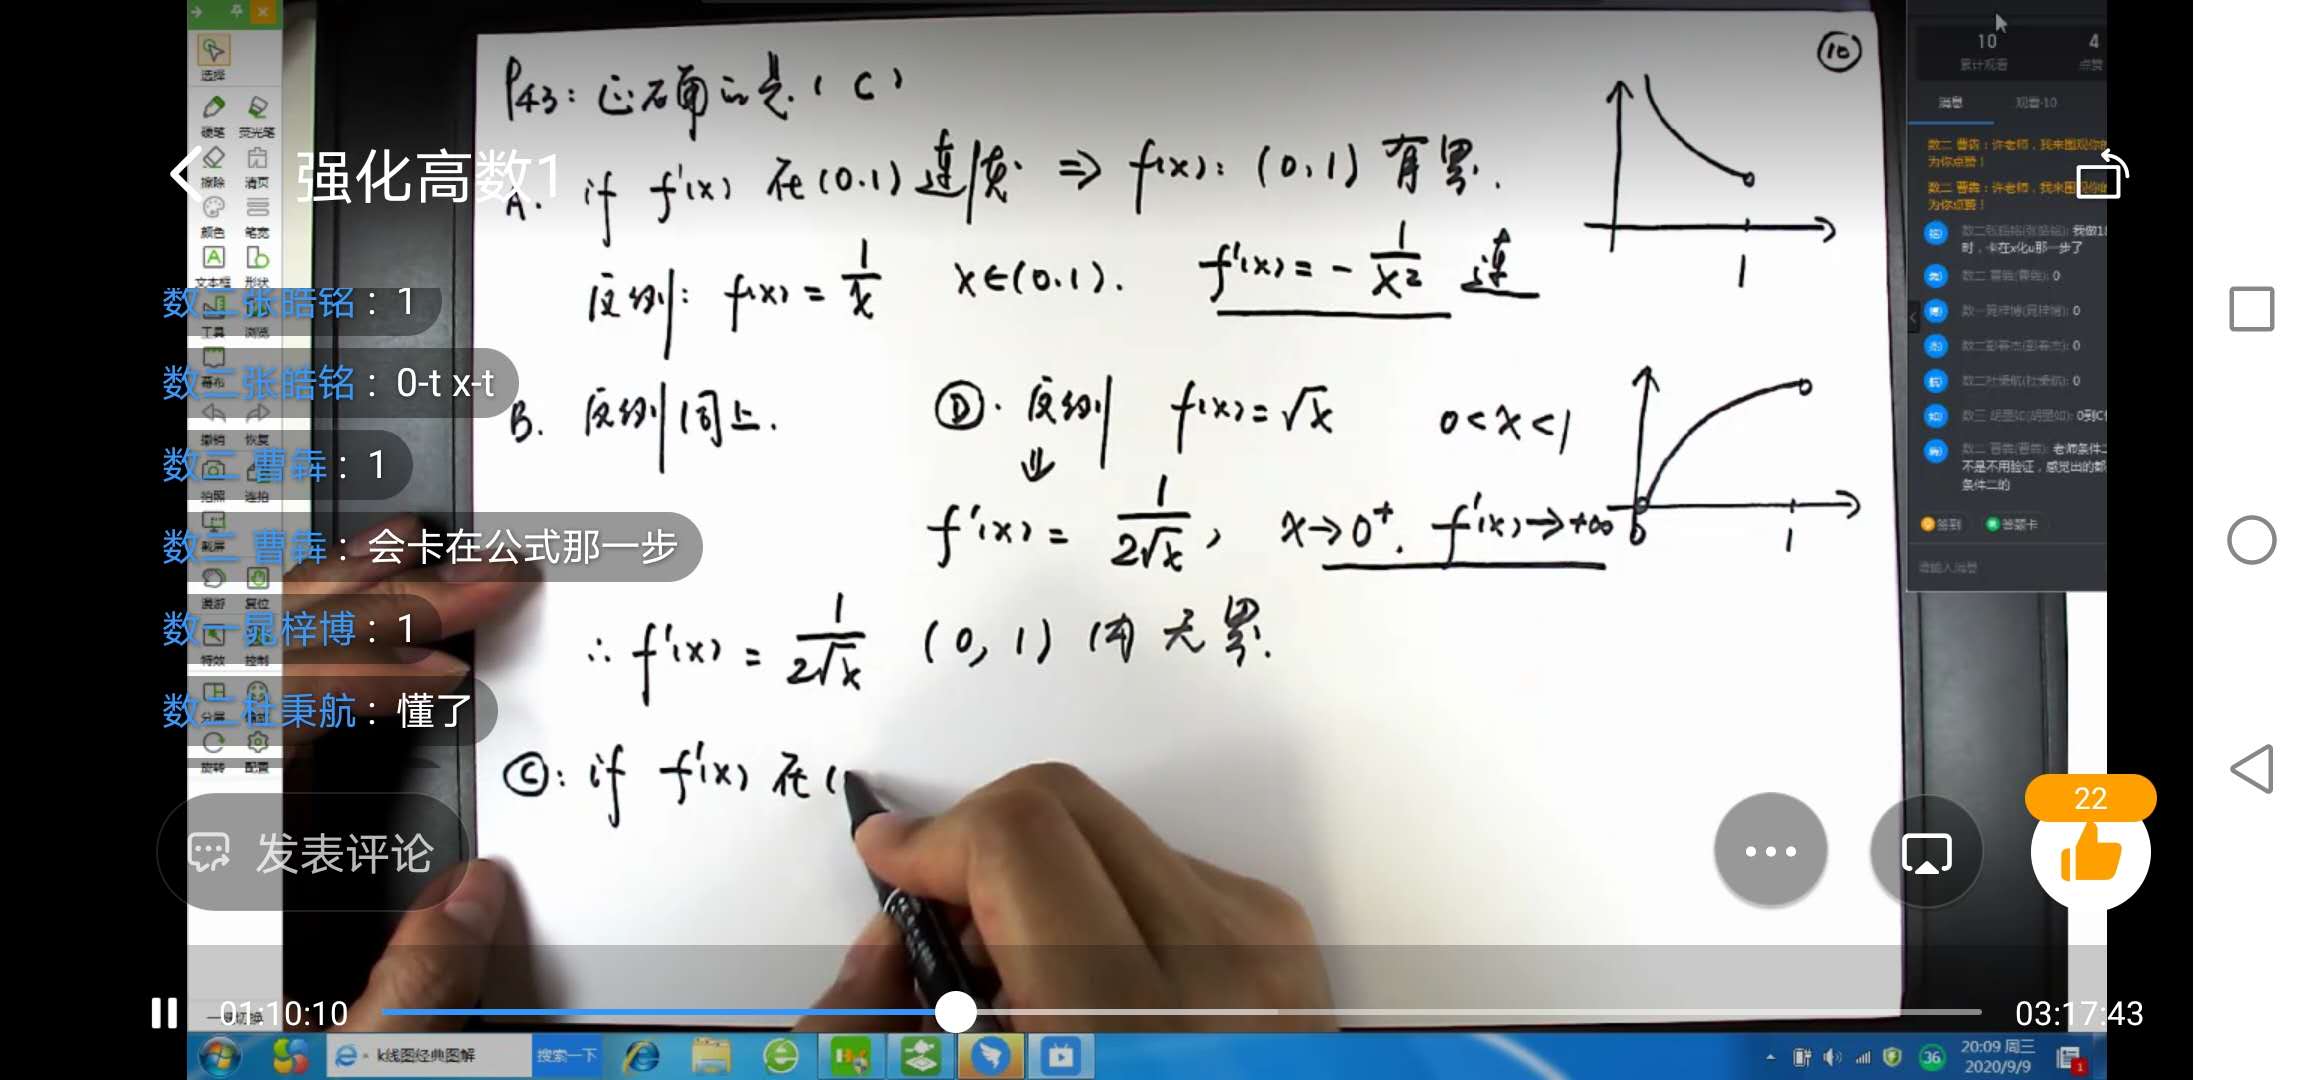 选择
硬笔 荧光笔
擦除 清页
颜色 笔宽
文本框 形状
工具 浏览
幕布
撤销 恢复
拍照 连拍
截屏
漫游 复位
特效 控制
分屏
旋转 配置
强化高数1
数二张皓铭：1
数二张皓铭：0-t x-t
数二 曹犇：1
数二 曹犇：会卡在公式那一步
数一晁梓博：1
数二杜秉航：懂了
发表评论
P43: 正确的是（C）
⑩
A. if f'(x) 在(0.1)连续 ⇒ f(x): (0,1) 有界.
反例: f(x) = 1/x x∈(0.1). f'(x) = - 1/x² 连
1
B. 反例同上. Ⓓ. 反例 f(x) = √x 0 < x < 1
⇓
f'(x) = 1/2√x , x→0⁺. f'(x)→+∞
0 1
∴ f'(x) = 1/2√x (0, 1) 内 无界.
Ⓒ: if f'(x) 在(
10 4
累计观看 点赞
消息 观看·10
数二 曹犇：许老师，我来围观你的
为你点赞！
数二 曹犇：许老师，我来围观你的
为你点赞！
时，卡在x化u那一步了
数二 曹犇(曹犇): 0
数一晁梓博(晁梓博): 0
数二杜秉航(杜秉航): 0
不是不用验证，感觉出的都
条件二的
签到 答题卡
请输入消息
22
01:10:10
03:17:43
k线图经典图解 搜索一下
36
20:09 周三
2020/9/9
1